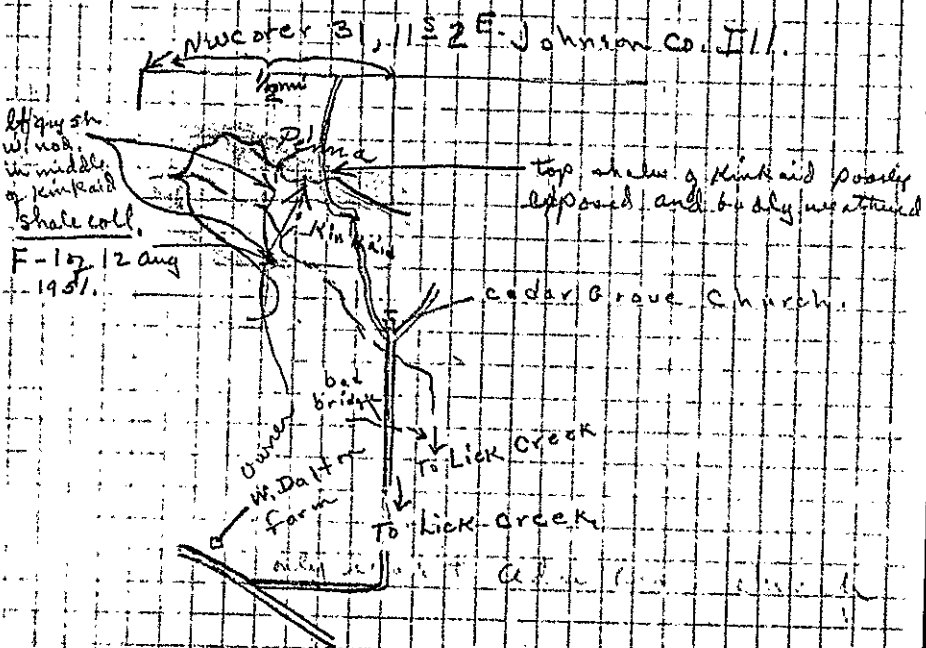 NW cover 31, 11S 2E. Johnson Co. Ill.
1/2 mi
lt gry sh
w. nod.
in middle
of Kinkaid
shale coll.
F-1 of 12 Aug
1951.
Penna
Kinkaid
top shales of Kinkaid poorly
exposed and badly weathered
Cedar Grove Church.
bad
bridge
To Lick Creek
To Lick Creek
owner
W. Dalton
farm
only